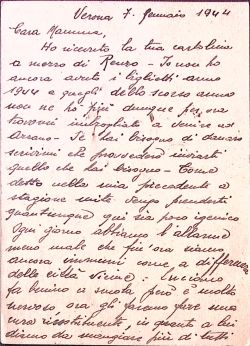 Verona 7. Gennaio 1944
Cara Mamma,
Ho ricevuto la tua cartolina
a mezzo di Renzo - Io non ho
ancora avuto i biglietti anno
1944 e quegli dello scorso anno
non ne ho più dunque per ora
trovomi a venire ad
- Se hai bisogno di danaro
scrivimi che provvedero inviarti
quello che hai bisogno - Come
detto nella mia precedente la
stagione mite tengo prenderti
quantunque qui sia poco igenico
Ogni giorno abbiamo l'allarme
meno male che fin'ora siamo
ancora immuni come a differenza
delle città vicine: Luciano
fa benino a scuola però è molto
nervoso ora gli facciamo fare una
cura ricostituente, in quanto a lui
dicono da mangiare più di tutti